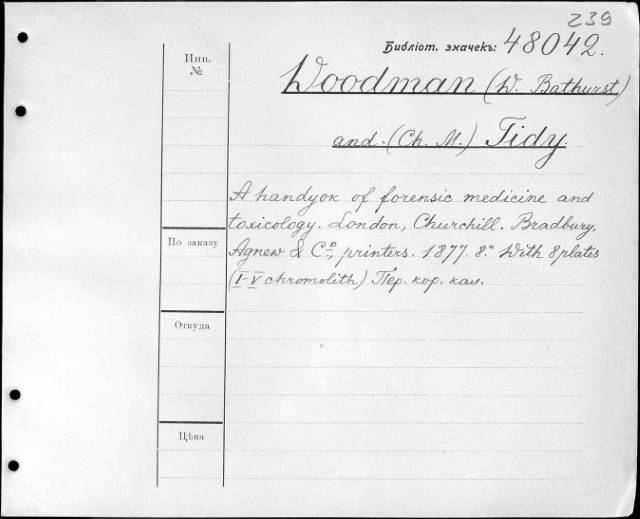 239
Библіот. значекъ: 48042.
Инв.
№
Woodman (W. Bathurst)
and (Ch. M.) Tidy.
A handyok of forensic medicine and
toxicology. London, Churchill. Bradbury,
По заказу
Agnew & Cº, printers. 1877. 8.º With 8 plates
(I-V chromolith) Пер. кор. кал.
Откуда
Цѣна